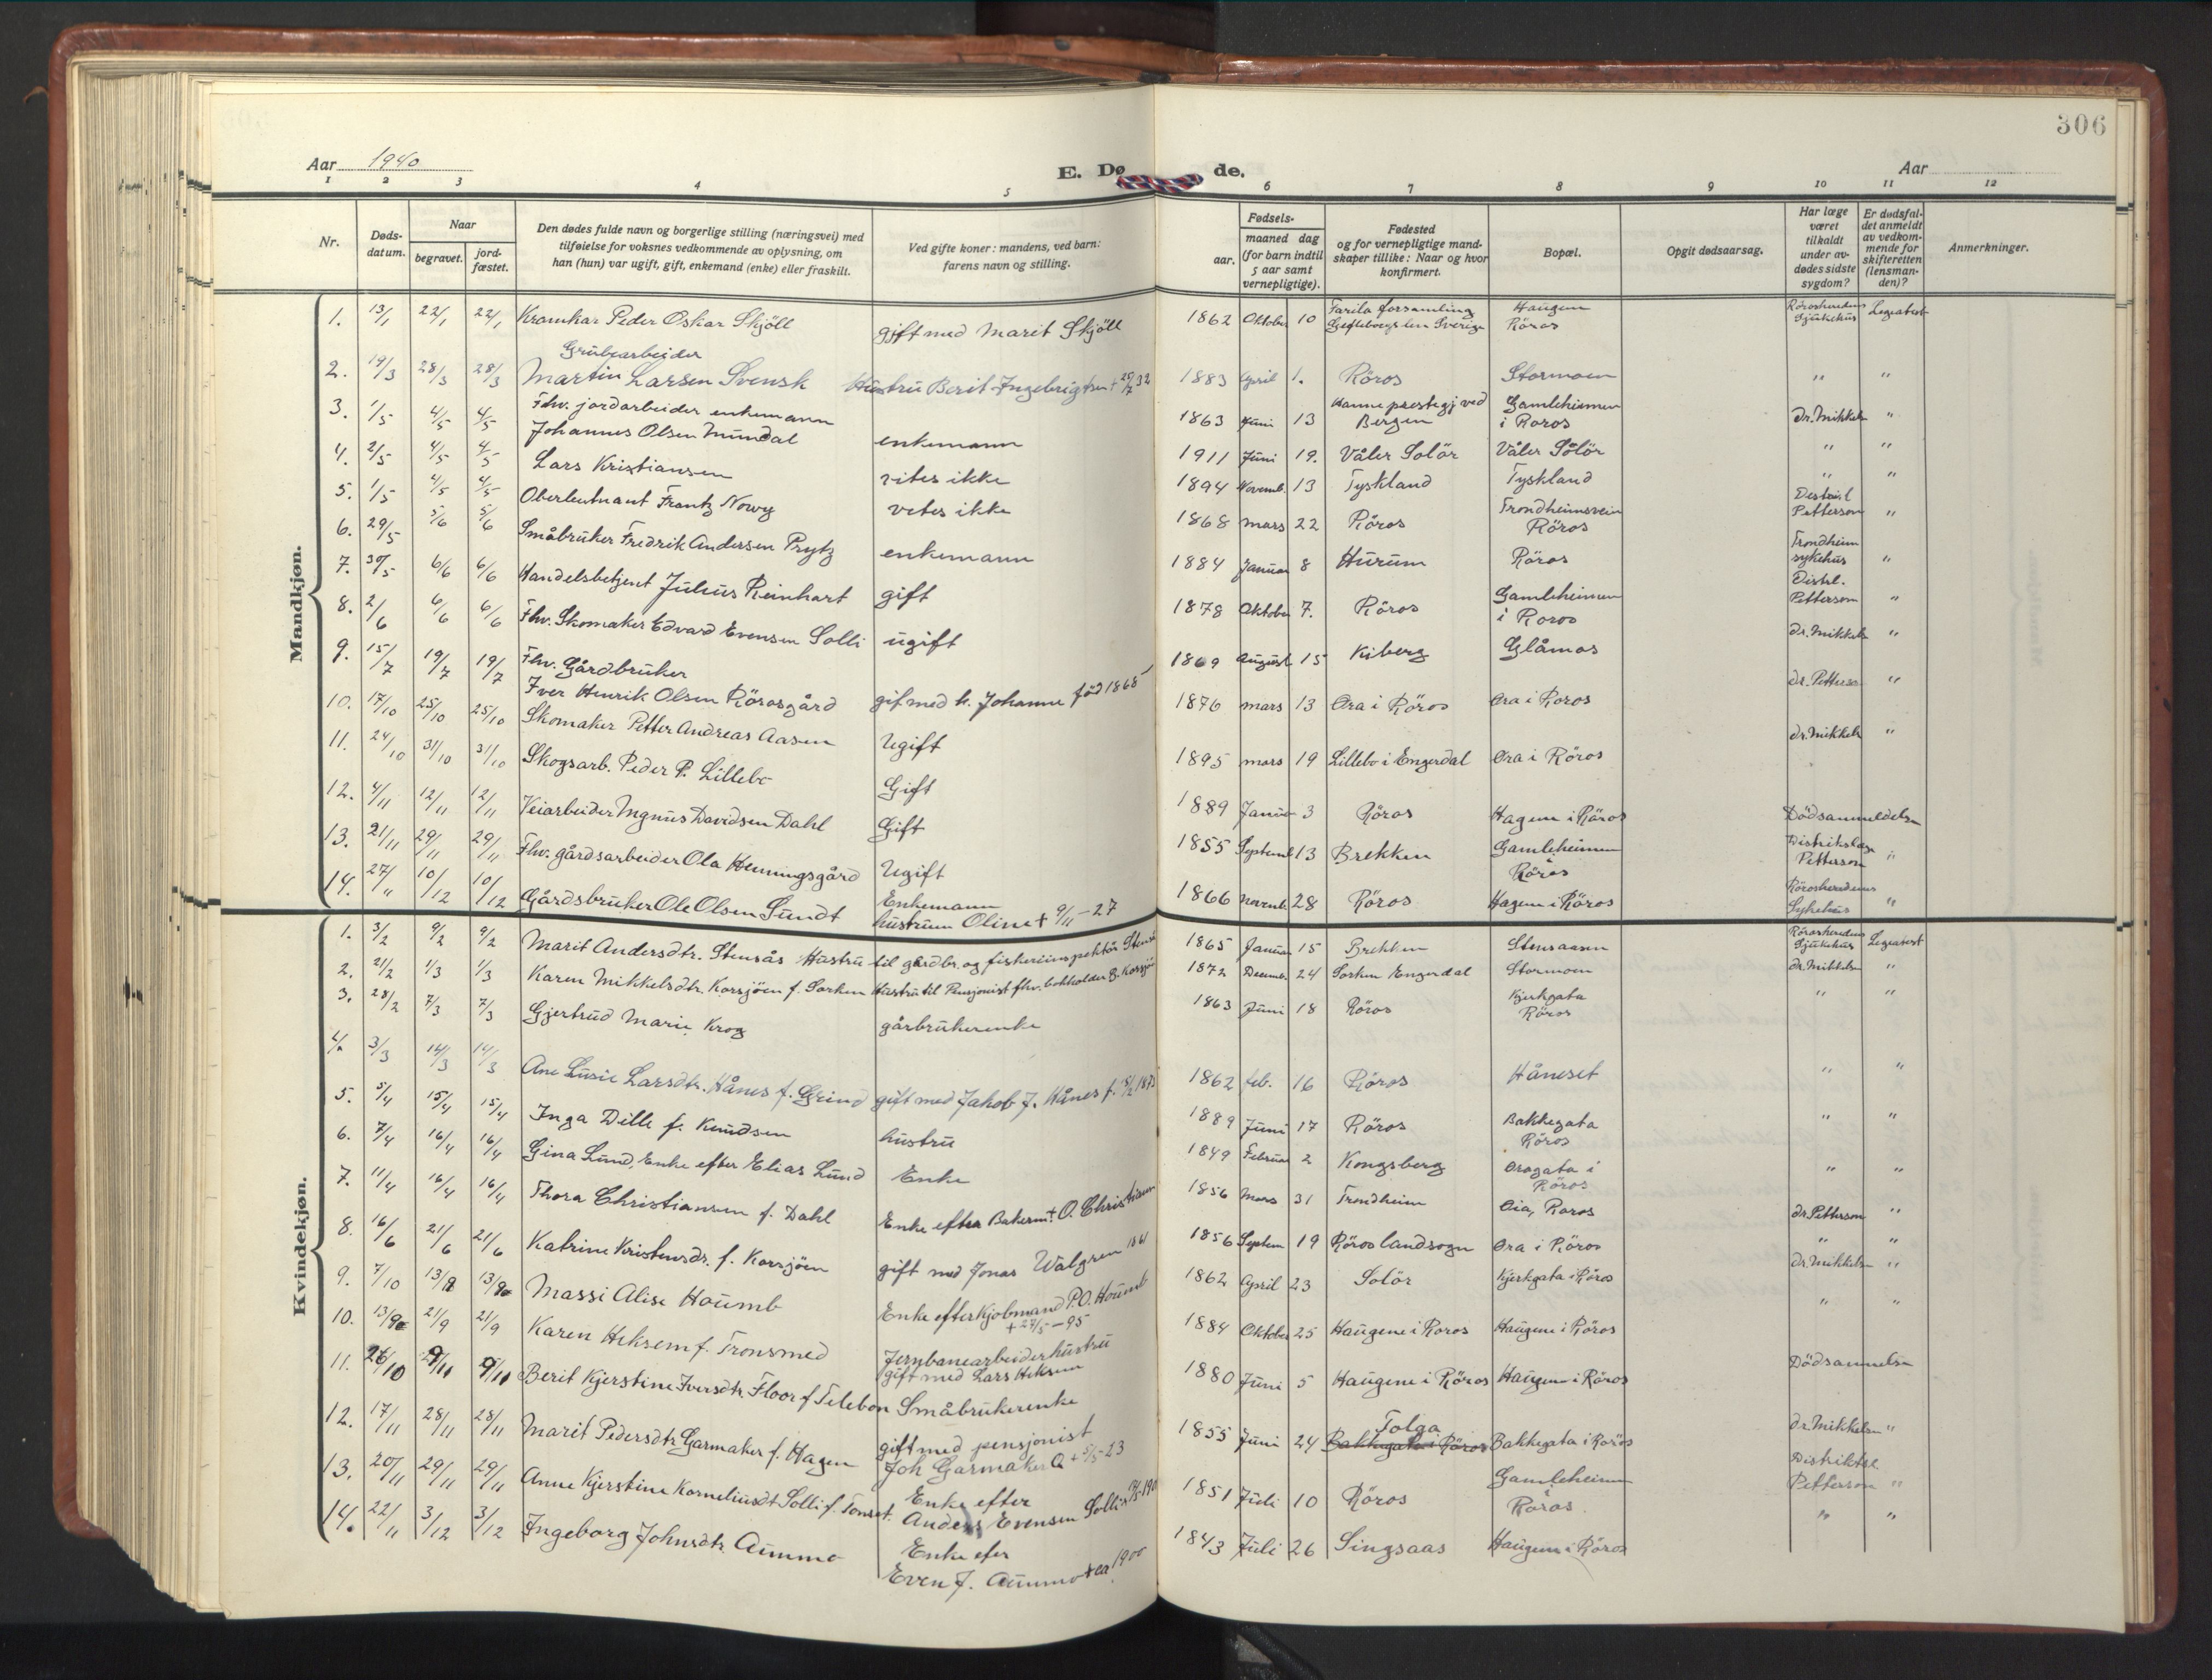 306
Aar 1940
E. Dø de.
Aar
1 2 3 4 5 6 7 8 9 10 11 12
Nr.
Døds-
datum.
Naar
begravet.
jord-
fæstet.
Den dødes fulde navn og borgerlige stilling (næringsvei) med
tilføielse for voksnes vedkommende av oplysning, om
han (hun) var ugift, gift, enkemand (enke) eller fraskilt.
Ved gifte koner: mandens, ved barn:
farens navn og stilling.
Fødsels-
aar.
maaned dag
(for barn indtil
5 aar samt
vernepligtige).
Fødested
og for vernepligtige mand-
skaper tillike: Naar og hvor
konfirmert.
Bopæl.
Opgit dødsaarsag.
Har læge
været
tilkaldt
under av-
dødes sidste
sygdom?
Er dødsfal-
det anmeldt
av vedkom-
mende for
skifteretten
(lensman-
den)?
Anmerkninger.
Mandkjøn.
1. 13/1 22/1 22/1 Peder Oskar Skjöll gift med Marit Skjöll 1862 Oktober 10 Farila forsamling Haugen
Gefleborgs len Sverige Röros Sjukehus
Grubearbejder
2. 19/3 28/3 28/3 Martin Larsen Svensk Hustru Berit Ingebrigtsen + 25/7 32 1883 April 1. Röros Stormoen " "
3. 1/5 4/5 4/5 Fhv. jordarbeider enkemann
Johannes Olsen Mundal enkemann 1863 Juni 13 prestegj ved Bergen Gamleheimen i Röros dr. Mikkels "
4. 2/5 4/5 4/5 Lars Kristiansen vites ikke 1911 Juni 19. Våler Solör Våler Solör " "
5. 1/5 4/5 4/5 Oberleutnant Frantz Nowy vetes ikke 1894 Novemb. 13 Tyskland Tyskland " "
6. 29/5 5/6 5/6 Småbruker Fredrik Andersen Prytz enkemann 1868 mars 22 Röros Trondheimsvein Röros Petterson "
7. 30/5 6/6 6/6 Handelsbetjent Julius Reinhart gift 1884 Januar 8 Hurum Röros Trondheim sykehus "
8. 2/6 6/6 6/6 Fhv. Skomaker Edvard Evensen Solli ugift 1878 Oktober 7. Röros Gamleheimen i Roros Distrl. Petterson "
9. 15/7 19/7 19/7 Fhv. Gårdbruker
Iver Henrik Olsen Rörosgård gif med h. Johanne föd 1868 1869 August 15 Kiberg Glåmos dr. Mikkels "
10. 17/10 25/10 25/10 Skomaker Petter Andreas Aasen Ugift 1876 mars 13 Öra i Röros Öra i Röros dr. Petterso "
11. 24/10 31/10 31/10 Skogsarb. Peder P. Lillebo Gift 1895 mars 19 Lillebo i Engerdal Öra i Röros dr. Mikkels "
12. 4/11 12/11 12/11 Veiarbeider Mgnus Davidsen Dahl Gift 1889 Januar 3 Röros Hagen i Röros Dödsanmeldelse
13. 21/11 29/11 29/11 Fhv. gårdsarbeider Ola Henningsgård Ugift 1855 Septemb 13 Brekken Gamleheimen Röros Petterson "
14. 27/11 10/12 10/12 Gårdsbruker Ole Olsen Sundt Enkemann
hustruen Oline + 9/11-27 1866 novemb. 28 Röros Hagen i Röros Sykehus "
Kvindekjøn.
1. 3/2 9/2 9/2 Marit Andersdtr. Stensås Hustru til gårdbr. og fiskeriinspektör 1865 Januar 15 Brekken Stensaasen Sjukehus
2. 21/2 1/3 1/3 Karen Mikkelsdtr. Korsjöen f. Sorken Hustru til Pensjonist fhv. bokholder B. Korsjö 1872 Decemb. 24 Sorken Engerdal Stormoen dr. Mikkelsen "
3. 28/2 7/3 7/3 Gjertrud Marie Krog gårbrukerenke 1863 Juni 18 Röros Kjerkgata Röros " "
4. 3/3 14/3 14/3 Ane Lusie Larsdtr. Hånes f. Grind gift med Jakob J. Hånes 1862 feb. 16 Röros Håneset " "
5. 5/4 15/4 15/4 Inga Dille f. Knudsen hustru 1889 Juni 17 Röros Bakkegata Röros " "
6. 7/4 16/4 16/4 Gina Lund, Enke efter Elias Lund Enke 1849 Februar 2 Kongsberg Öragata i Röros " "
7. 11/4 16/4 16/4 Thora Christiansen f. Dahl Enke efter Bakerm. O. Christiansen 1856 Mars 31 Trondheim Öia, Roros dr. Petterson "
8. 16/6 21/6 21/6 Katrine Kristensdr. f. Korsjöen gift med Jonas Walgren 1861 1856 Septem 19 Röros landsogn Öra i Röros " "
9. 7/10 Massi Alise Houmb Enke efter Kjöbmand P.O. Houmb
+ 27/5-95 1862 April 23 Solör Kjerkgata i Röros dr. Mikkelsen "
10. 21/9 21/9 Karen Heksem f. Tronsmed Jernbanearbeiderhustru
gift med Lars Heksem 1884 Oktober 25 Haugene i Roros Haugene i Röros " "
11. 26/10 9/11 9/11 Berit Kjerstine Iversdtr. Floor f Telebon Småbrukerenke 1880 Juni 5 Haugene i Röros Haugene i Röros
12. 17/11 28/11 28/11 Marit Pedersdtr Garmaker f. Hagen gift med pensjonist
Joh Garmaker 1855 Juni 24 Tolga
Bakkegata i Röros Bakkegata i Röros dr. Mikkelsen "
13. 20/11 29/11 29/11 Anne Kjerstine Korneliusdt Solli f. Tonset. Enke efter
Anders Evensen Solli 1851 Juli 10 Röros Gamleheimen Röros. Distriktsl. Petterson "
14. 22/11 3/12 3/12 Ingeborg Johnsdtr. Aummo Enke efer
Even J. Aummo + ca 1900 1843 Juli 26 Singsaas Haugene i Röros " "